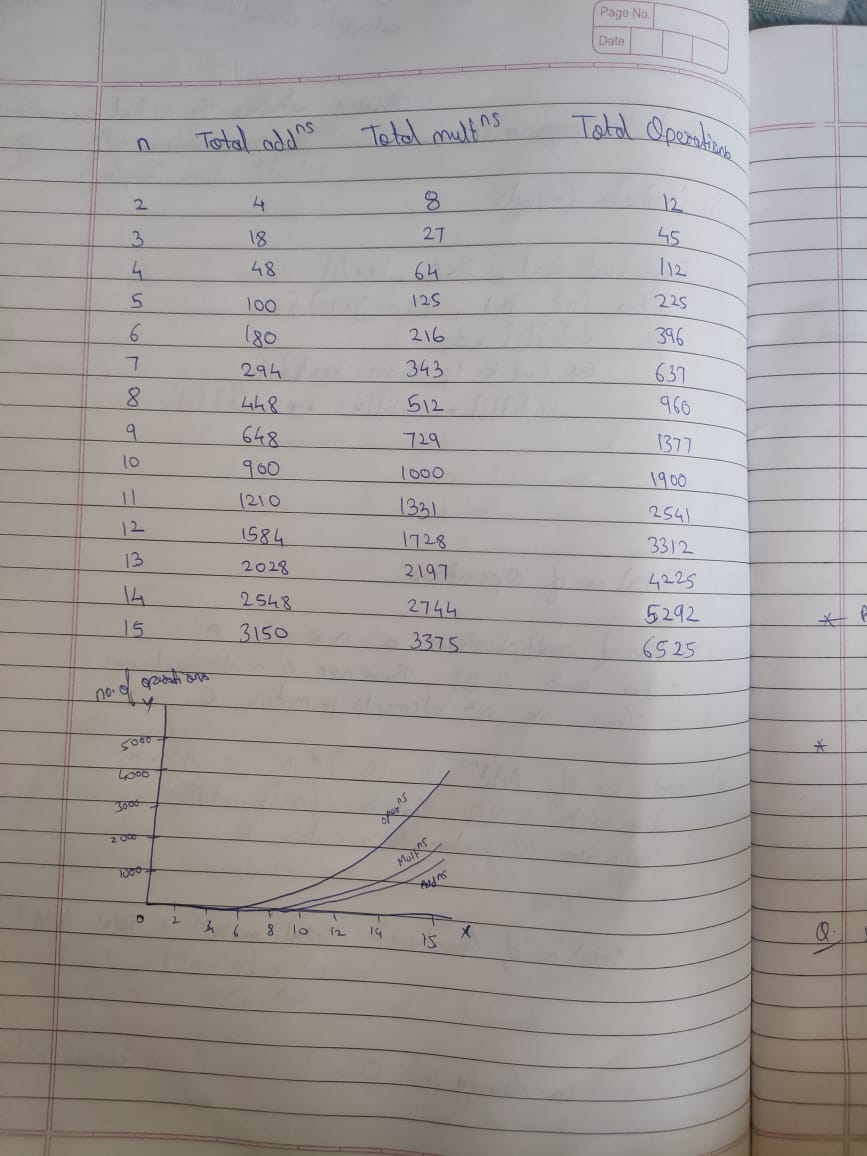 Page No.
Date
n Total addns Total multns Total Operations
2 4 8 12
3 18 27 45
4 48 64 112
5 100 125 225
6 180 216 396
7 294 343 637
8 448 512 960
9 648 729 1377
10 900 1000 1900
11 1210 1331 2541
12 1584 1728 3312
13 2028 2197 4225
14 2548 2744 5292
15 3150 3375 6525
no. of operations
Y
5000
4000
3000
2000
1000
operns
Multns
Addns
0 2 4 6 8 10 12 14 15 X
*
*
Q.